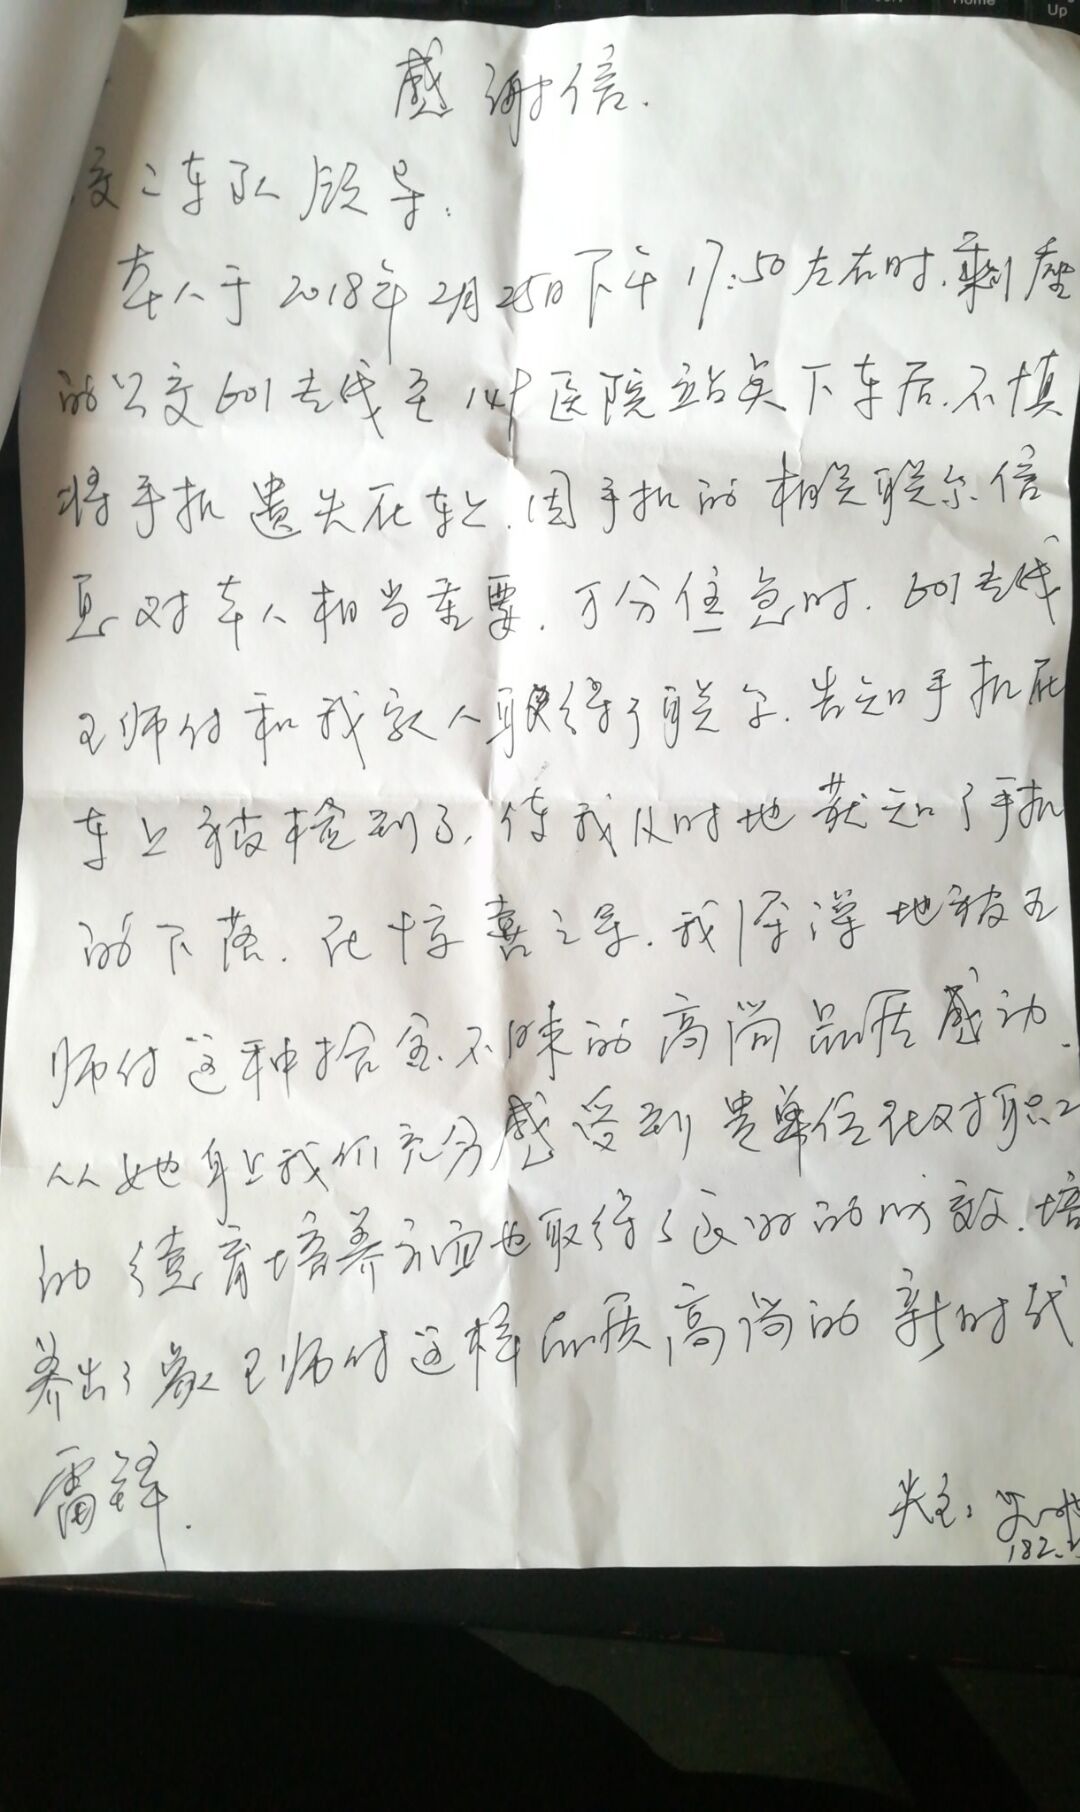 感谢信.
交二车队领导:
本人于2018年2月25日下午17:50左右时.乘座
的公交601专线至148医院站点下车后.不慎
将手机遗失在车上.因手机的相关联系信
息对本人相当重要.万分住急时.601专线
王师付和我家人取得了联系.告知手机在
车上被捡到了,使我及时地获知了手机
的下落.在惊喜之余.我深深地被王
师付这种拾金不昧的高尚品质感动.
从她身上我们充分感受到贵单位在对职工
的德育培养方面也取得了良好的成效.培
养出了象王师付这样品质高尚的新时代
雷锋.
失主:
182